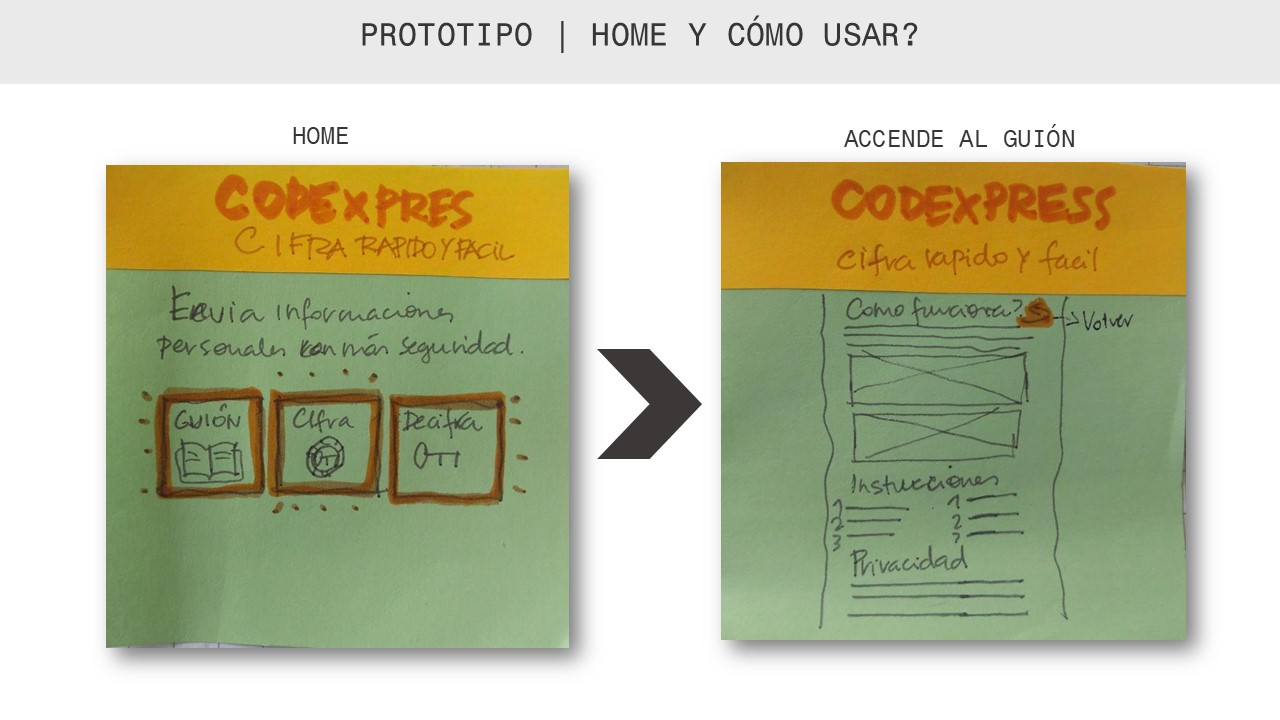 PROTOTIPO | HOME Y CÓMO USAR?
HOME
CODEXPRES
CIFRA RAPIDO Y FACIL
Envia informaciones
personales con más seguridad.
GUIÓN
Cifra
Decifra
ACCENDE AL GUIÓN
CODEXPRESS
cifra rapido y facil
Como funciona?
Volver
Instucciones
1 1
2 2
3 3
Privacidad